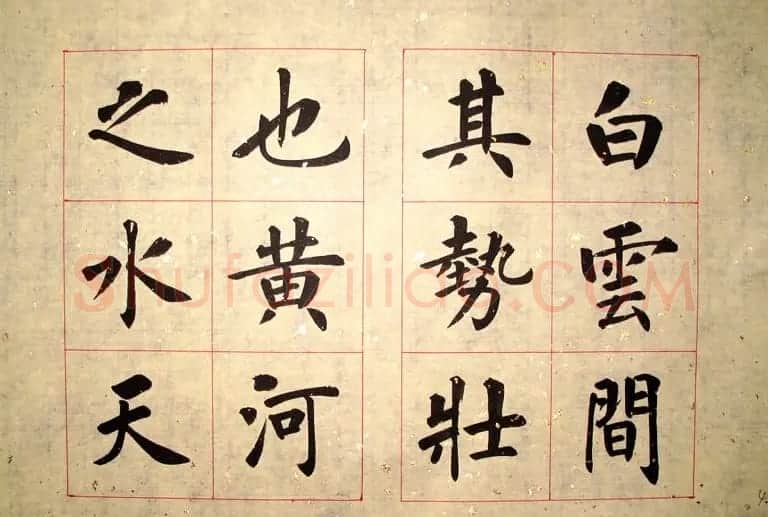 白雲間
其勢壯
也黄河
之水天
Shufaziliao.COM